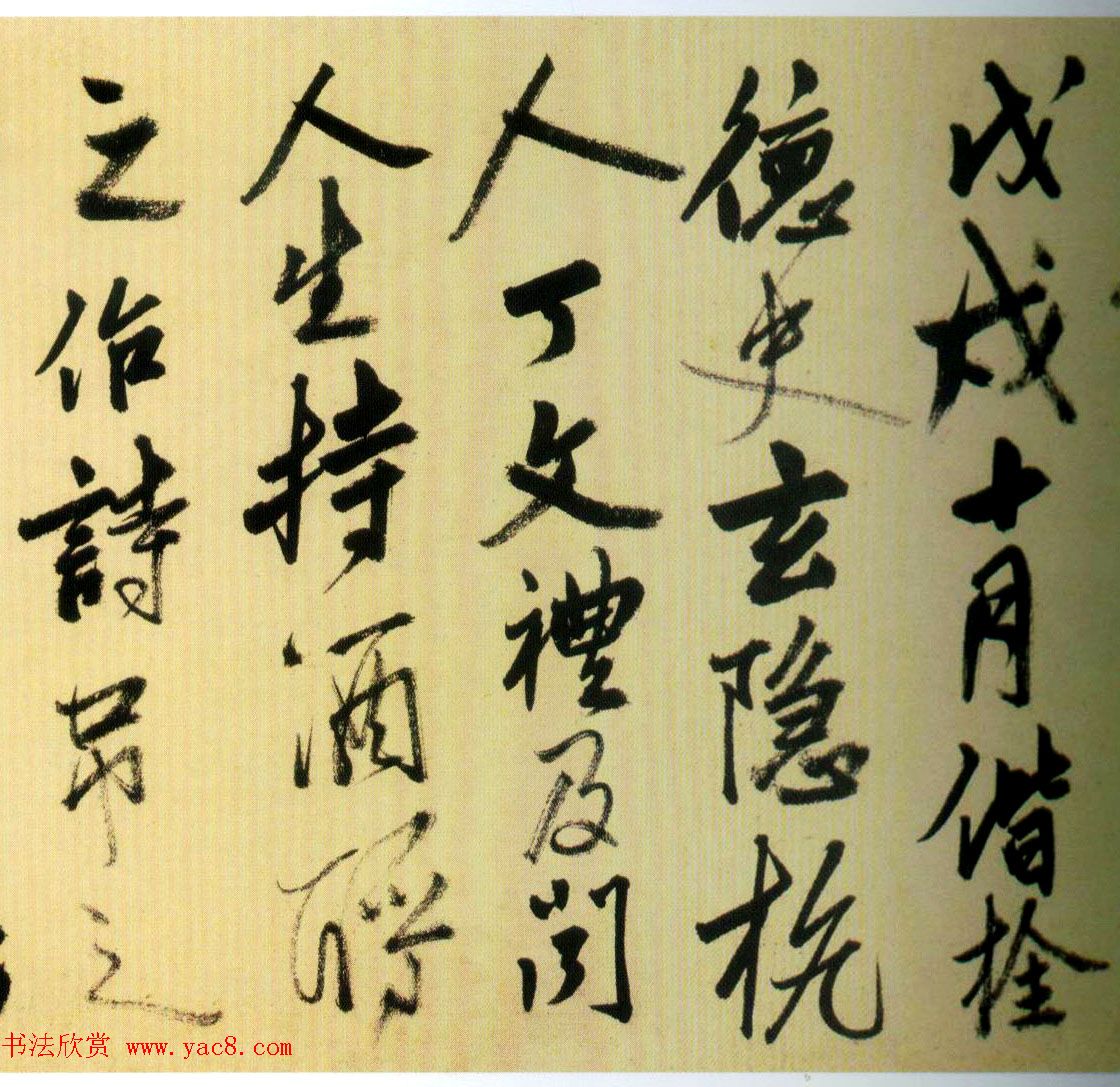 戊戌十月偕栓
德史玄隐杭
人丁文禮及
人生持酒酹
之作詩弔之
书法欣赏 www.yac8.com